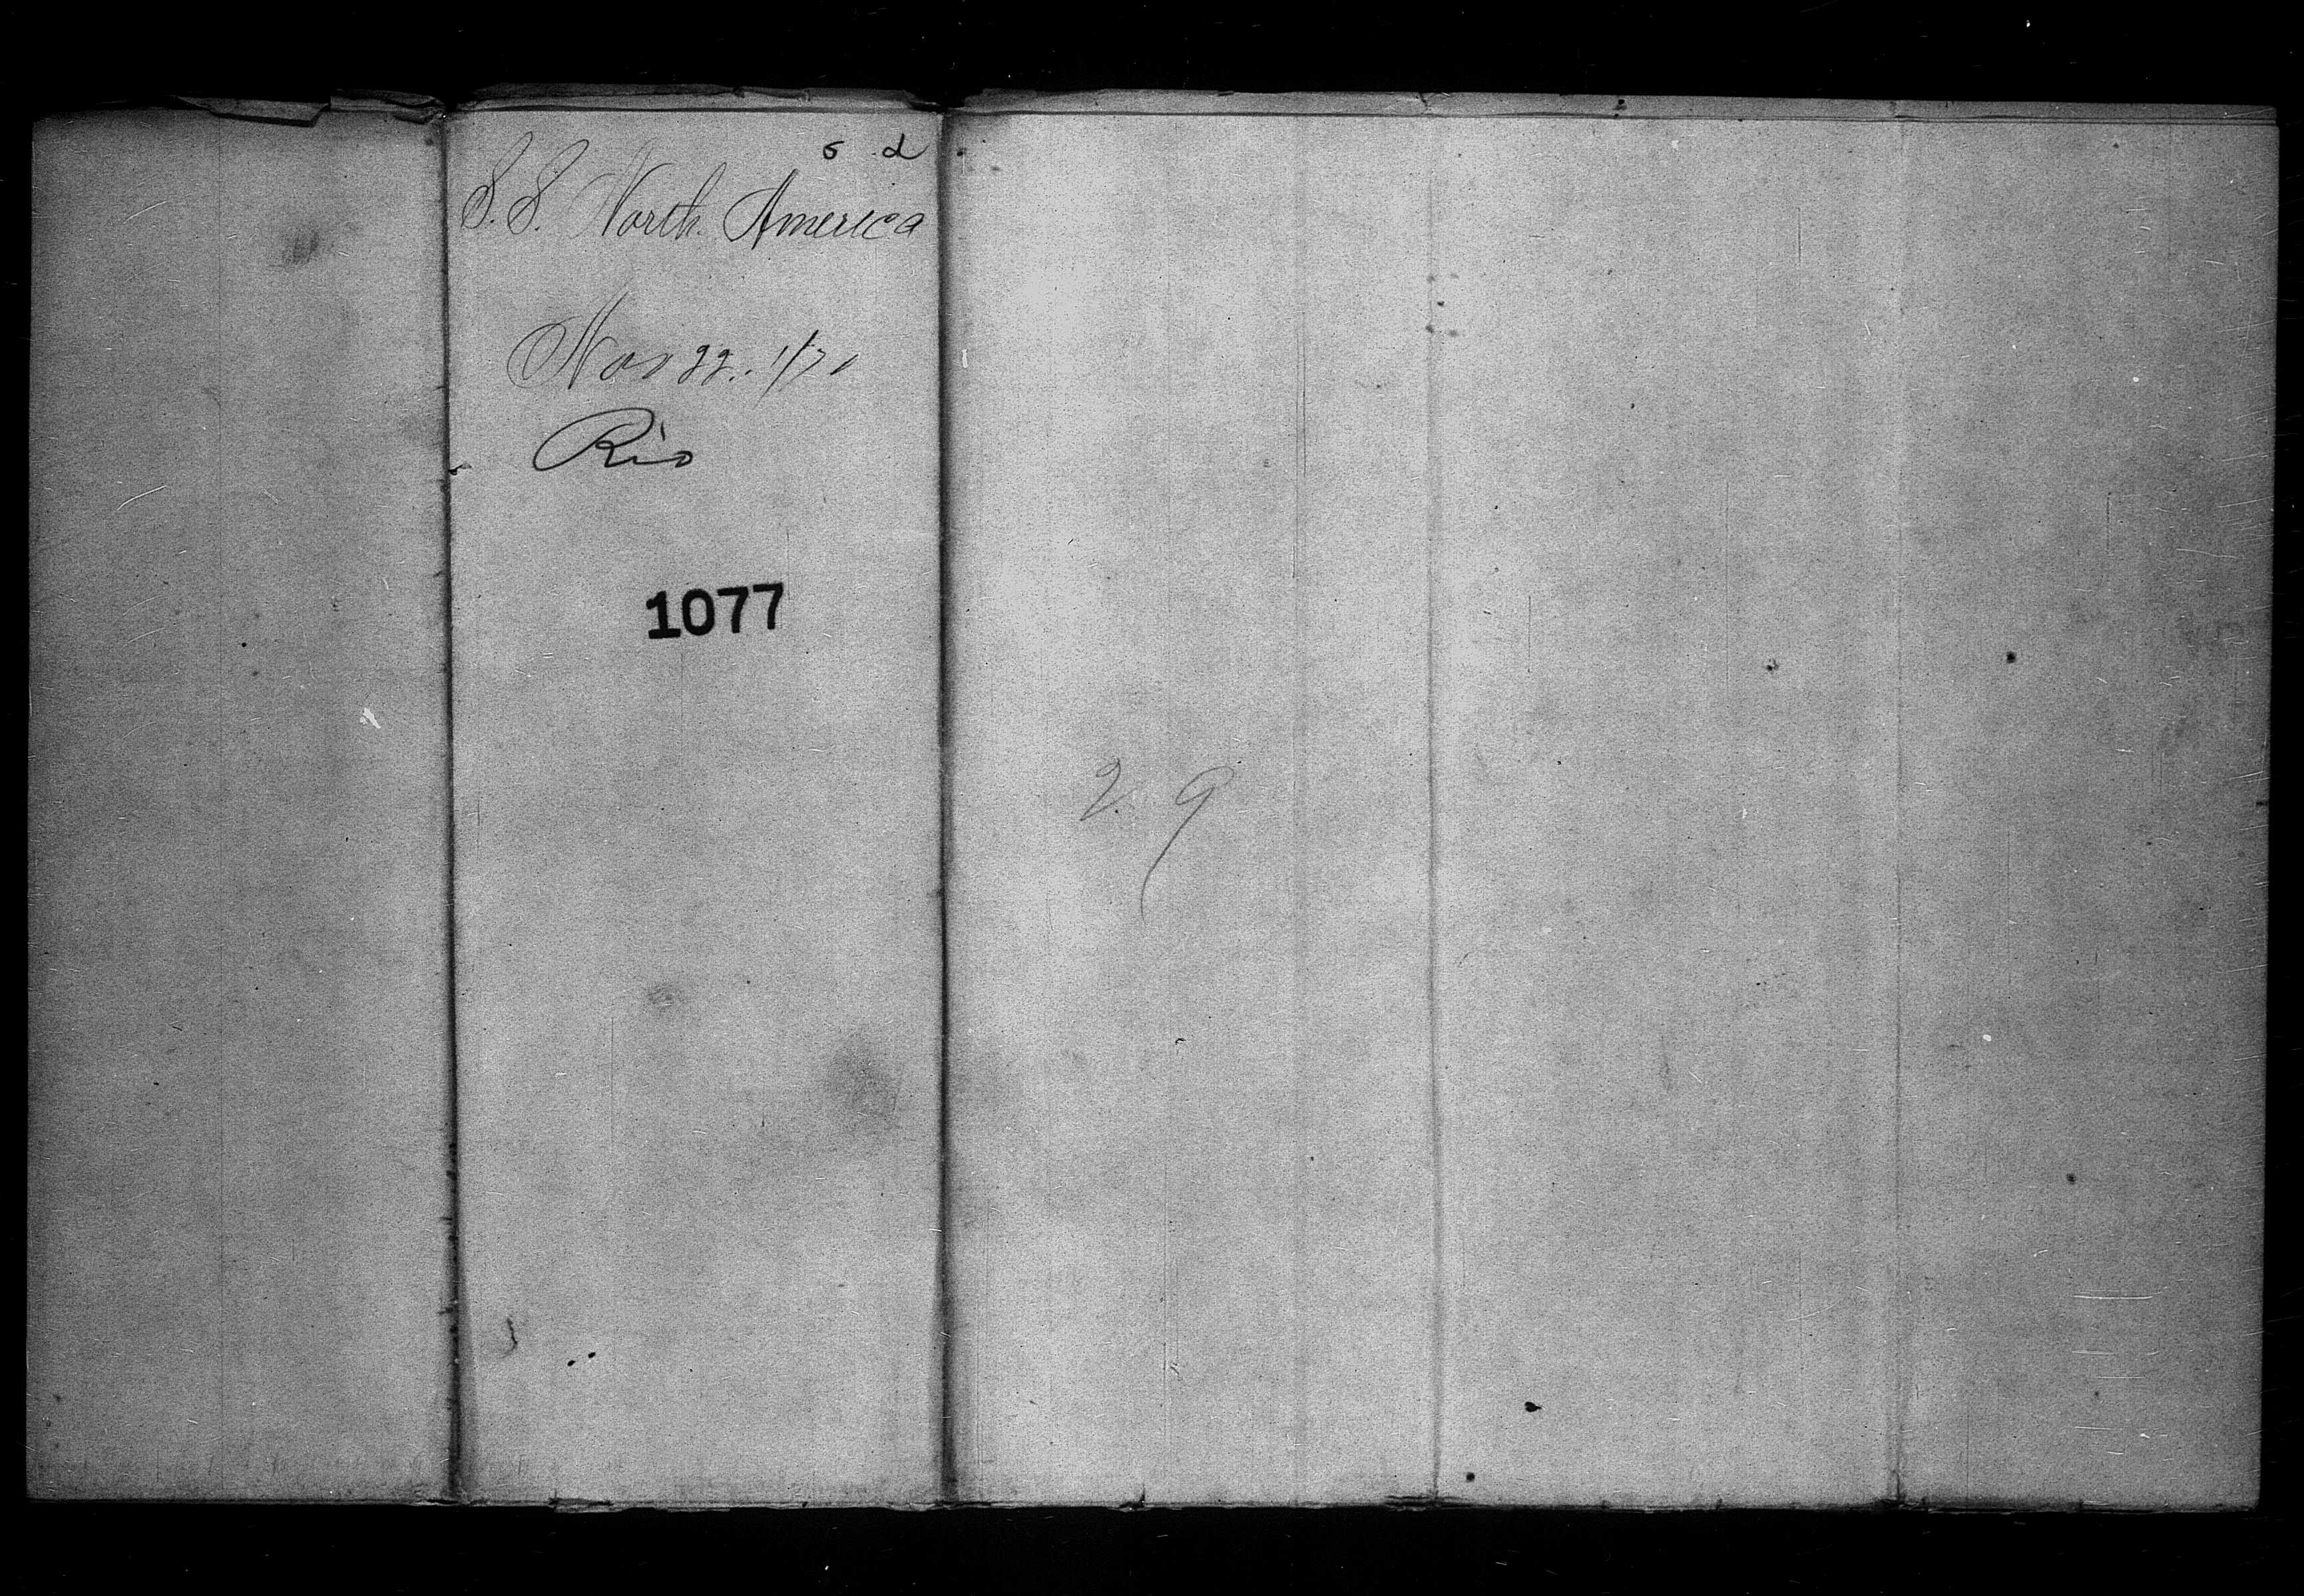 S. S. North America
Nov 22. 1/71
Rio
1077
2. 9